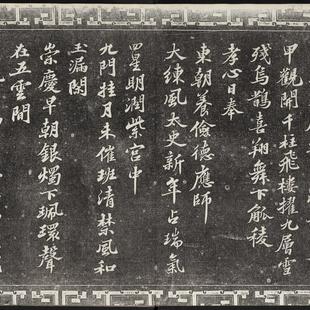 甲觀開千柱飛樓擢九層雪
殘烏鵲喜翔舞下觚稜
孝心日奉
東朝養儉德應師
大練風太史新年占瑞氣
四星明潤紫宮中
九門挂月未催班清禁風和
玉漏閑
崇慶早朝銀燭下珮環聲
在五雲間